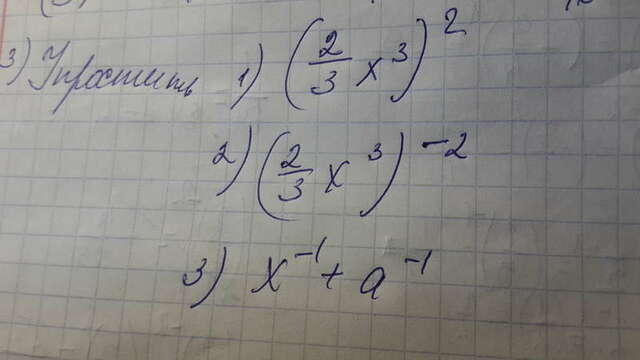 3) Упростить 1) (2/3 x³)²
2) (2/3 x³)⁻²
3) x⁻¹ + a⁻¹